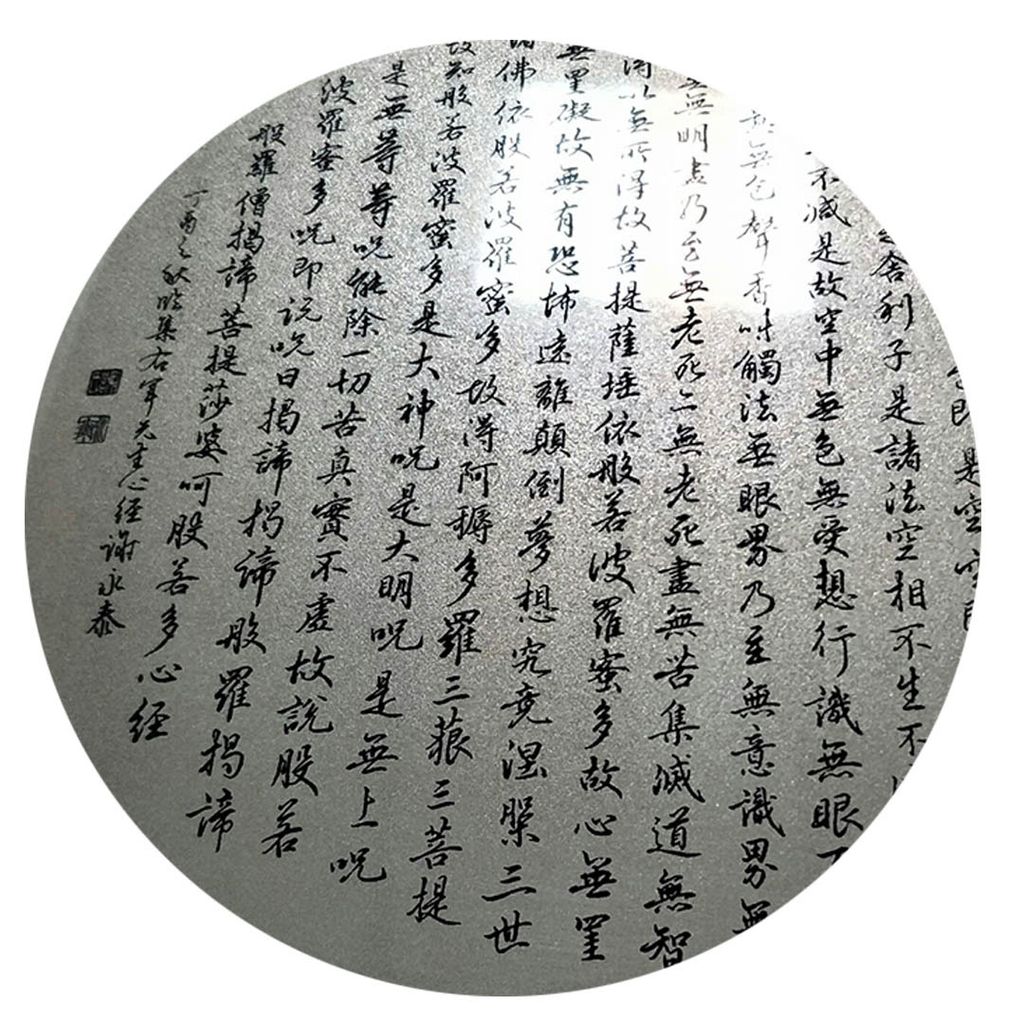 即是空空即
舍利子是諸法空相不生不
不減是故空中無色無受想行識無眼
無色聲香味觸法無眼界乃至無意識界無
無明盡乃至無老死亦無老死盡無苦集滅道無智
得以無所得故菩提薩埵依般若波羅蜜多故心無罣
無罣礙故無有恐怖遠離顛倒夢想究竟涅槃三世
諸佛依般若波羅蜜多故得阿耨多羅三藐三菩提
故知般若波羅蜜多是大神呪是大明呪是無上呪
是無等等呪能除一切苦真實不虛故說般若
波羅蜜多呪即說呪曰揭諦揭諦般羅揭諦
般羅僧揭諦菩提莎婆呵般若多心經
丁酉之秋集右軍先生心經謝永泰